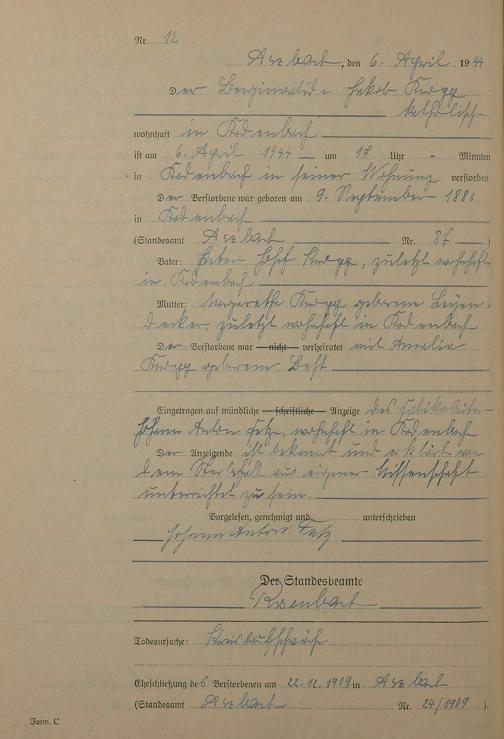 Nr. 12
Arzbach, den 6. April 1944
Der Berginvalide Jakob Knopp
katholisch
wohnhaft in Kadenbach
ist am 6. April 1944 um 17 Uhr - Minuten
in Kadenbach in seiner Wohnung verstorben.
Der Verstorbene war geboren am 9. September 1880
in Kadenbach
(Standesamt Arzbach Nr. 87)
Vater: Peter Josef Knopp, zuletzt wohnhaft
in Kadenbach
Mutter: Margaretha Knopp geborene
decker, zuletzt wohnhaft in Kadenbach
Der Verstorbene war nicht verheiratet mit Amalie
Knopp geborene
Eingetragen auf mündliche schriftliche Anzeige des Fabrikarbeiter
Johann Anton wohnhaft in Kadenbach
Der Anzeigende ist bekannt und erklärt von
dem Sterbefall aus eigener Wissenschaft
unterrichtet zu sein.
Vorgelesen, genehmigt und unterschrieben
Johann Anton
Der Standesbeamte
Todesursache:
Eheschließung des Verstorbenen am 22.12.1909 in Arzbach
(Standesamt Arzbach Nr. 24/1909).
Form. C